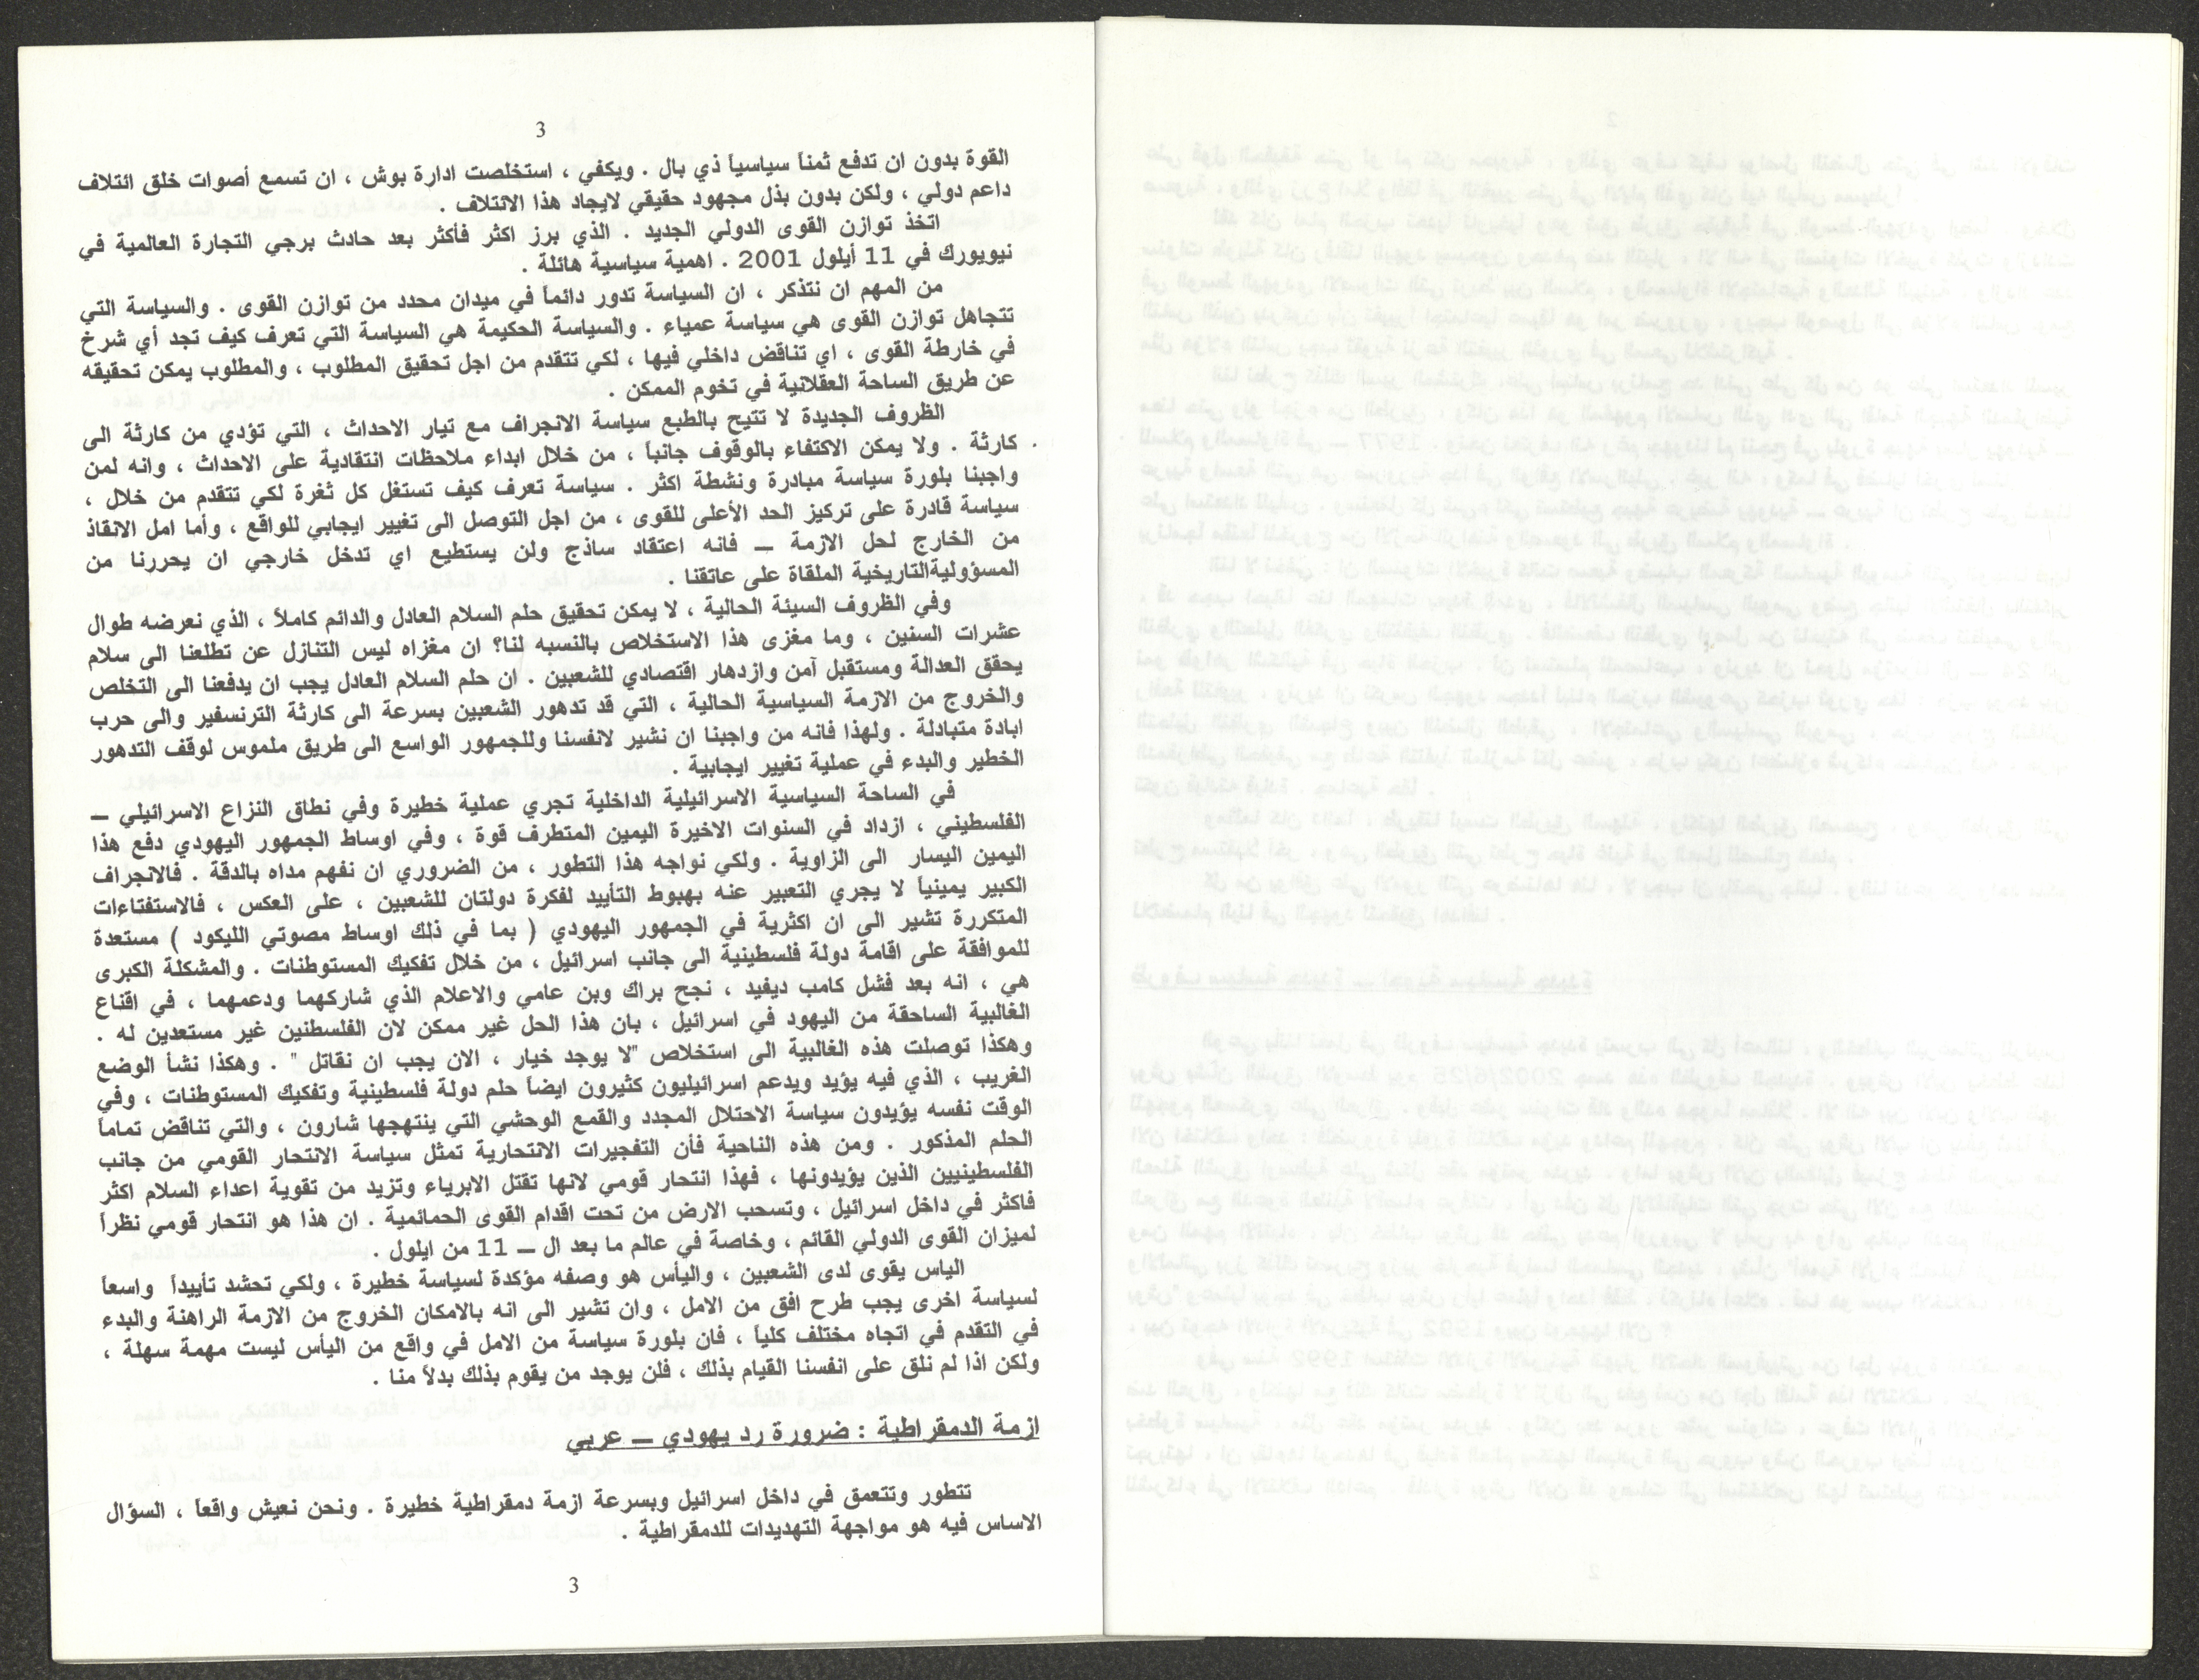 3
القوة بدون ان تدفع ثمناً سياسياً ذي بال . ويكفي ، استخلصت ادارة بوش ، ان تسمع أصوات خلق ائتلاف
داعم دولي ، ولكن بدون بذل مجهود حقيقي لايجاد هذا الائتلاف .
اتخذ توازن القوى الدولي الجديد . الذي برز اكثر فأكثر بعد حادث برجي التجارة العالمية في
نيويورك في 11 أيلول 2001 . اهمية سياسية هائلة .
من المهم ان نتذكر ، ان السياسة تدور دائماً في ميدان محدد من توازن القوى . والسياسة التي
تتجاهل توازن القوى هي سياسة عمياء . والسياسة الحكيمة هي السياسة التي تعرف كيف تجد أي شرخ
في خارطة القوى ، اي تناقض داخلي فيها ، لكي تتقدم من اجل تحقيق المطلوب ، والمطلوب يمكن تحقيقه
عن طريق الساحة العقلانية في تخوم الممكن .
الظروف الجديدة لا تتيح بالطبع سياسة الانجراف مع تيار الاحداث ، التي تؤدي من كارثة الى
كارثة . ولا يمكن الاكتفاء بالوقوف جانباً ، من خلال ابداء ملاحظات انتقادية على الاحداث ، وانه لمن
واجبنا بلورة سياسة مبادرة ونشطة اكثر . سياسة تعرف كيف تستغل كل ثغرة لكي تتقدم من خلال ،
سياسة قادرة على تركيز الحد الأعلى للقوى ، من اجل التوصل الى تغيير ايجابي للواقع ، وأما امل الانقاذ
من الخارج لحل الازمة – فانه اعتقاد ساذج ولن يستطيع اي تدخل خارجي ان يحررنا من
المسؤوليةالتاريخية الملقاة على عاتقنا .
وفي الظروف السيئة الحالية ، لا يمكن تحقيق حلم السلام العادل والدائم كاملاً ، الذي نعرضه طوال
عشرات السنين ، وما مغزى هذا الاستخلاص بالنسبه لنا؟ ان مغزاه ليس التنازل عن تطلعنا الى سلام
يحقق العدالة ومستقبل آمن وازدهار اقتصادي للشعبين . ان حلم السلام العادل يجب ان يدفعنا الى التخلص
والخروج من الازمة السياسية الحالية ، التي قد تدهور الشعبين بسرعة الى كارثة الترنسفير والى حرب
ابادة متبادلة . ولهذا فانه من واجبنا ان نشير لانفسنا وللجمهور الواسع الى طريق ملموس لوقف التدهور
الخطير والبدء في عملية تغيير ايجابية .
في الساحة السياسية الاسرائيلية الداخلية تجري عملية خطيرة وفي نطاق النزاع الاسرائيلي –
الفلسطيني ، ازداد في السنوات الاخيرة اليمين المتطرف قوة ، وفي اوساط الجمهور اليهودي دفع هذا
اليمين اليسار الى الزاوية . ولكي نواجه هذا التطور ، من الضروري ان نفهم مداه بالدقة . فالانجراف
الكبير يمينياً لا يجري التعبير عنه بهبوط التأييد لفكرة دولتان للشعبين ، على العكس ، فالاستفتاءات
المتكررة تشير الى ان اكثرية في الجمهور اليهودي ( بما في ذلك اوساط مصوتي الليكود ) مستعدة
للموافقة على اقامة دولة فلسطينية الى جانب اسرائيل ، من خلال تفكيك المستوطنات . والمشكلة الكبرى
هي ، انه بعد فشل كامب ديفيد ، نجح براك وبن عامي والاعلام الذي شاركهما ودعمهما ، في اقناع
الغالبية الساحقة من اليهود في اسرائيل ، بان هذا الحل غير ممكن لان الفلسطنين غير مستعدين له .
وهكذا توصلت هذه الغالبية الى استخلاص "لا يوجد خيار ، الان يجب ان نقاتل " . وهكذا نشأ الوضع
الغريب ، الذي فيه يؤيد ويدعم اسرائيليون كثيرون ايضاً حلم دولة فلسطينية وتفكيك المستوطنات ، وفي
الوقت نفسه يؤيدون سياسة الاحتلال المجدد والقمع الوحشي التي ينتهجها شارون ، والتي تناقض تماماً
الحلم المذكور . ومن هذه الناحية فأن التفجيرات الانتحارية تمثل سياسة الانتحار القومي من جانب
الفلسطينيين الذين يؤيدونها ، فهذا انتحار قومي لانها تقتل الابرياء وتزيد من تقوية اعداء السلام اكثر
فاكثر في داخل اسرائيل ، وتسحب الارض من تحت اقدام القوى الحمائمية . ان هذا هو انتحار قومي نظراً
لميزان القوى الدولي القائم ، وخاصة في عالم ما بعد ال – 11 من ايلول .
الياس يقوى لدى الشعبين ، واليأس هو وصفه مؤكدة لسياسة خطيرة ، ولكي تحشد تأييداً واسعاً
لسياسة اخرى يجب طرح افق من الامل ، وان تشير الى انه بالامكان الخروج من الازمة الراهنة والبدء
في التقدم في اتجاه مختلف كلياً ، فان بلورة سياسة من الامل في واقع من اليأس ليست مهمة سهلة ،
ولكن اذا لم نلق على انفسنا القيام بذلك ، فلن يوجد من يقوم بذلك بدلاً منا .
ازمة الدمقراطية : ضرورة رد يهودي – عربي
تتطور وتتعمق في داخل اسرائيل وبسرعة ازمة دمقراطية خطيرة . ونحن نعيش واقعاً ، السؤال
الاساس فيه هو مواجهة التهديدات للدمقراطية .
3